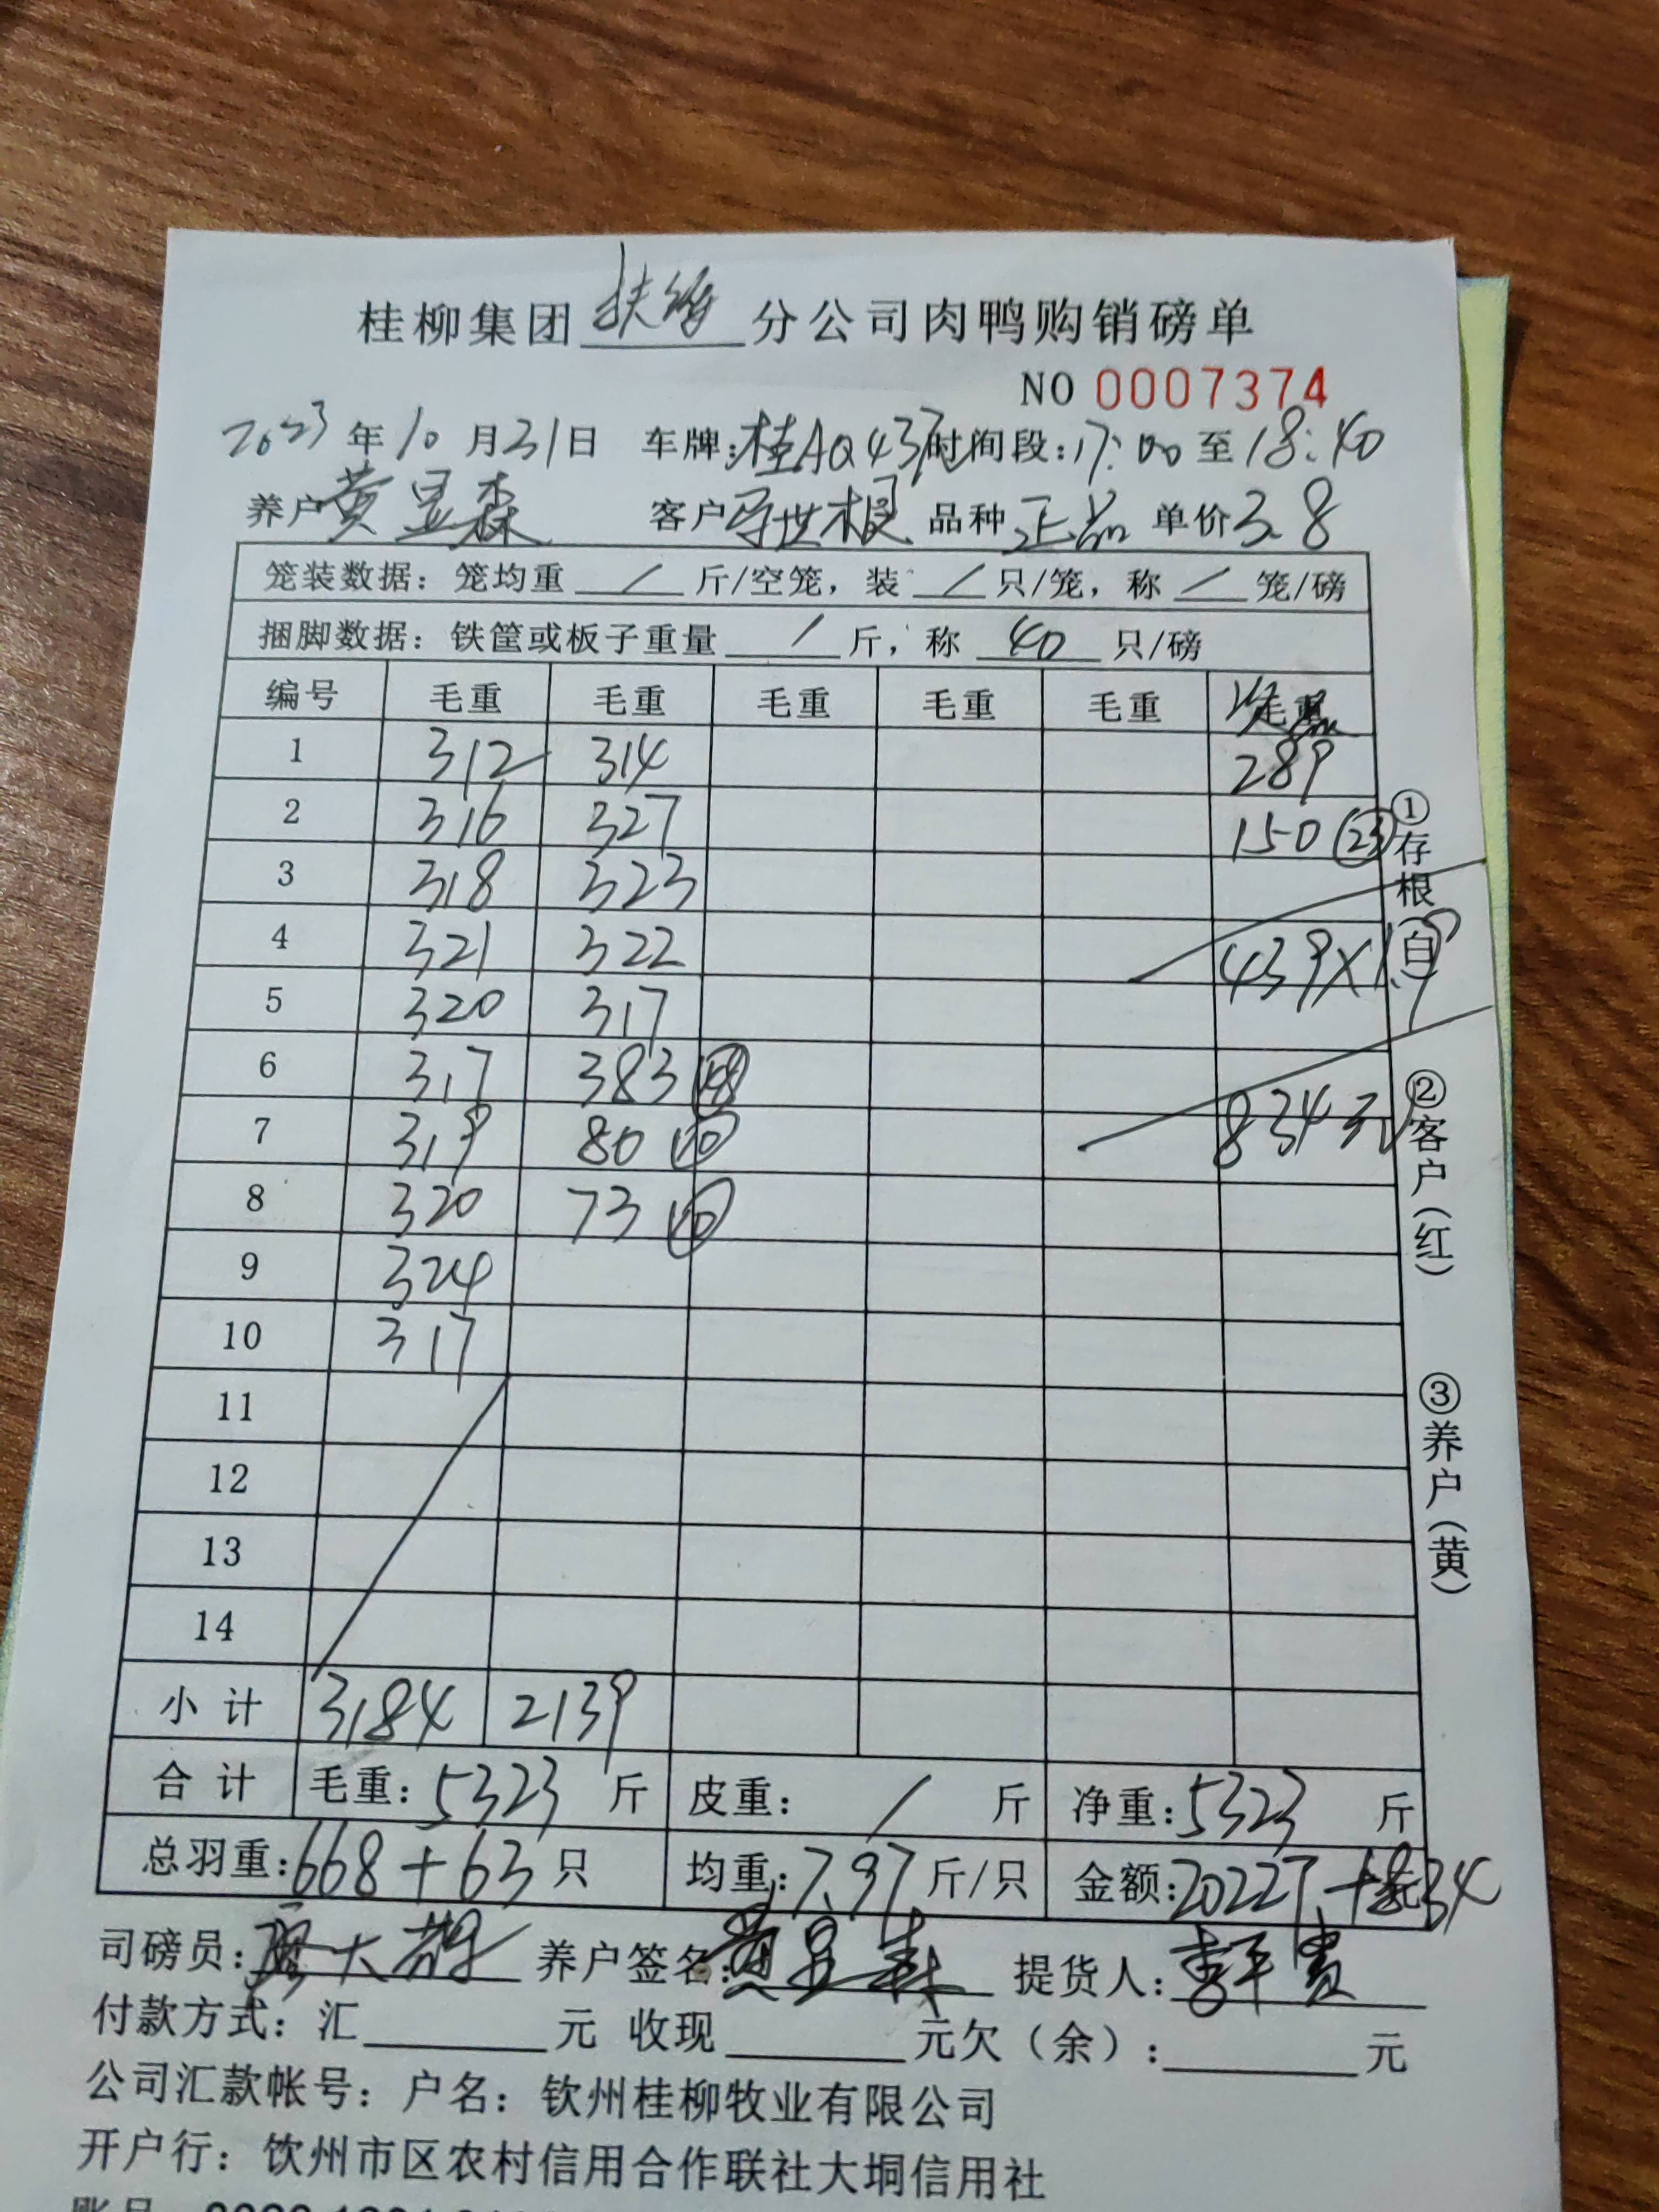 桂柳集团扶绥分公司肉鸭购销磅单
NO 0007374
2023年10月31日 车牌:桂AQ437 时间段:17:00至18:40
养户黄显森 客户世根 品种正品 单价3.8
笼装数据：笼均重 / 斤/空笼，装 / 只/笼，称 / 笼/磅
捆脚数据：铁筐或板子重量 / 斤，称 40 只/磅
编号 毛重 毛重 毛重 毛重 毛重 毛重
1 312 314 289
2 316 327 150 (23)
3 318 323
4 321 322 439×1.9
5 320 317
6 317 383 (48)
7 319 80 (10) 834元
8 320 73 (10)
9 324
10 317
11
12
13
14
小计 3184 2139
合计 毛重:5323斤 皮重: / 斤 净重:5323斤
总羽重:668+63只 均重:7.97斤/只 金额:20227+834
司磅员:大 养户签名:黄显森 提货人:李平贵
付款方式：汇 元 收现 元欠（余）: 元
公司汇款帐号：户名：钦州桂柳牧业有限公司
开户行：饮州市区农村信用合作联社大垌信用社
①存根(白)
②客户(红)
③养户(黄)